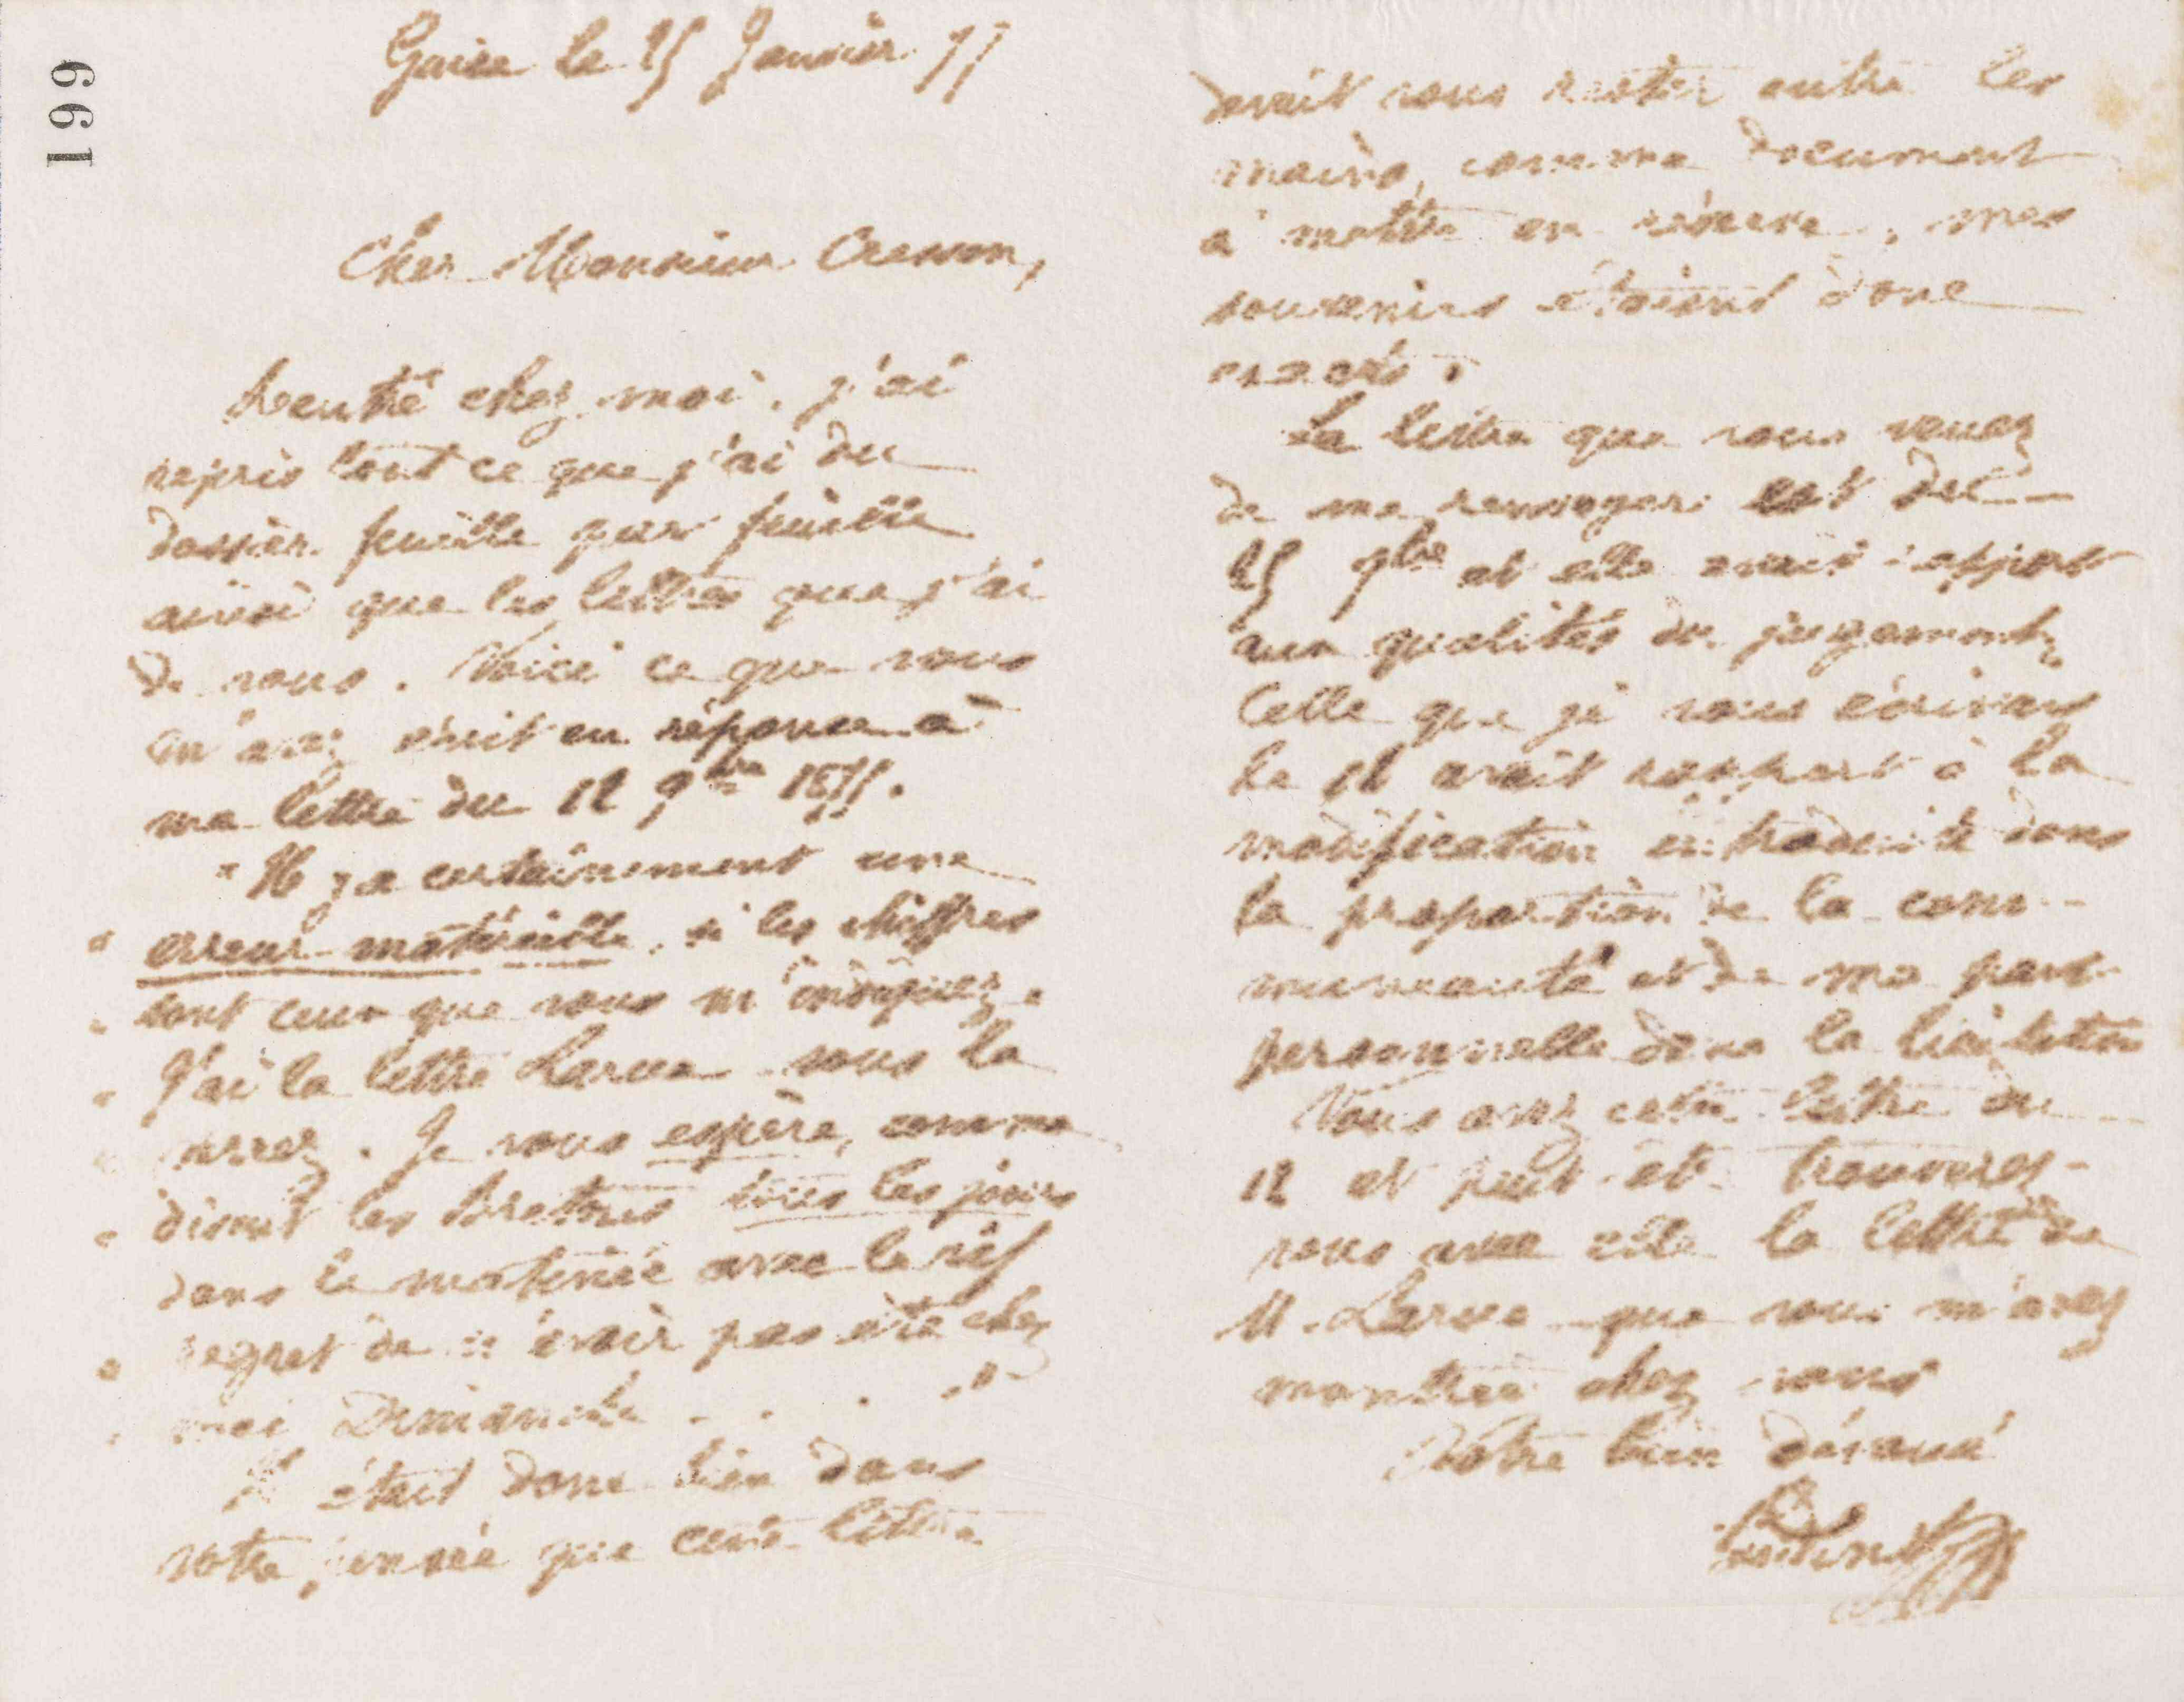 199
Guise le 25 Janvier 77
Cher Monsieur Cresson,
Rentré chez moi, j'ai
repris tout ce que j'ai du
dossier feuille par feuille
ainsi que les lettres que j'ai
de vous. Voici ce que vous
m'avez écrit en réponse à
ma lettre du 12 9bre 1875.
" Il y a certainement une
" erreur matérielle, si les chiffres
" sont ceux que vous m'indiquez.
" J'ai la lettre Larue sous la
" . Je vous espère, comme
" disent les bretons tous les jours
dans la matinée avec le vif
" regret de n'avoir pas été chez
" moi Dimanche . . . "
Il était donc bien dans
votre pensée que cette lettre
devait vous rester entre les
mains, comme document
à mettre en réserve, mes
souvenirs étaient donc
exacts.
La lettre que vous venez
de me renvoyer est du
25 9bre et elle avait rapport
aux qualités du jugement.
Celle que je vous écrivais
le 12 avait rapport à la
modification introduite dans
la proportion de la com-
munauté et de ma part
personnelle dans la licitation
Vous avez cette lettre du
12 et peut-êt. trouverez-
vous avec elle la lettre de
M. Larue que vous m'avez
montrée chez vous
Votre bien dévoué
Godin